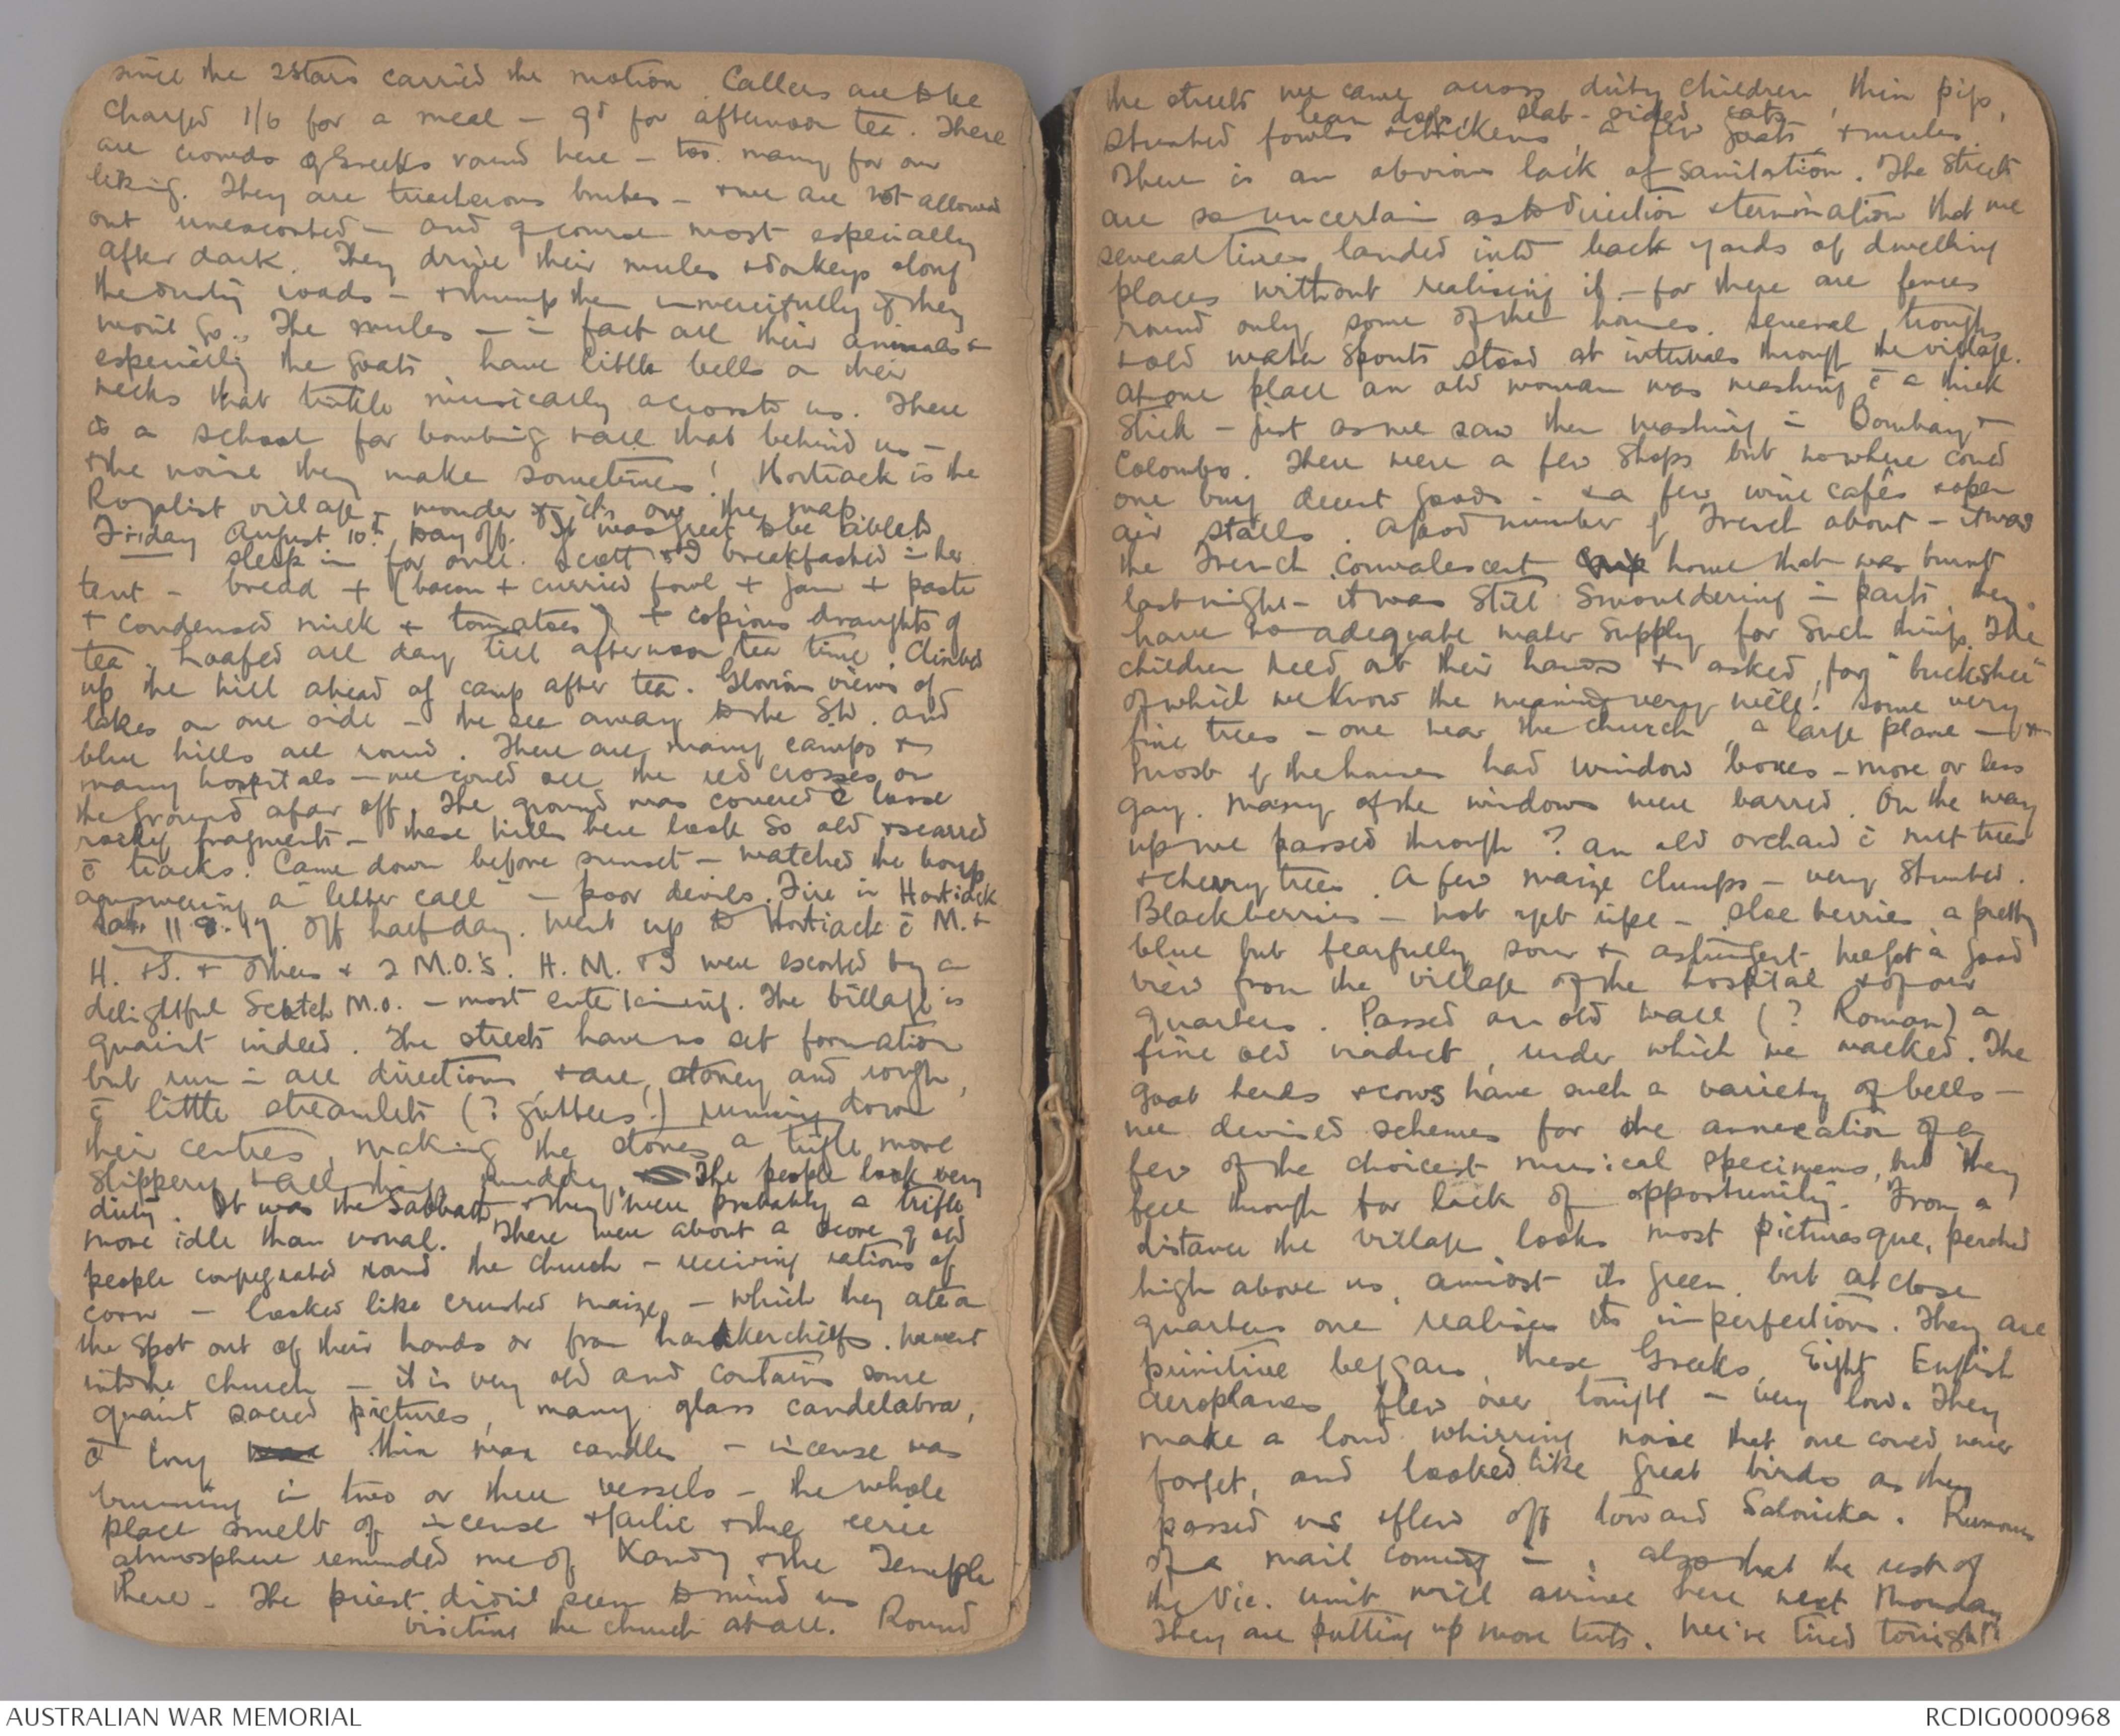 since the 2 Stars carried the motion. Callers are to be
charged 1/6 for a meal – 9d for afternoon tea. There
are crowds of Greeks round here – too many for our
liking. They are treacherous brutes – & we are not allowed
out unescorted – and of course most especially
after dark. They drive their mules & donkeys along
the dusty roads – & thump them unmercifully if they
won't go. The mules – in fact all their animals &
especially the goats have little bells on their
necks that tinkle musically across to us. There
is a school for bombing & all that behind us –
& the noise they make sometimes! Hortiack is the
Royalist village – wonder if it's on the map
Friday August 10th. Day off. It was great to be able to
sleep in for once. Scott & I breakfasted in her
tent – bread + (bacon + curried fowl + jam + paste
+ condensed milk + tomatoes) + copious draughts of
tea. Loafed all day till afternoon tea time. Climbed
up the hill ahead of camp after tea. Glorious views of
lakes on one side – the sea away to the S.W. and
blue hills all round. There are many camps &
many hospitals – we could see the red crosses on
the ground afar off. The ground was covered c̄ loose
rocky fragments – these hills here look so old & scarred
c̄ tracks. Came down before sunset – watched the boys
answering a "letter call" – poor devils. Fire in Hortiack
Sat. 11.8.17. Off half-day. Went up to Hortiack c̄ M. &
H. & S. & others & 2 M.O.'s. H. M. & I were escorted by a
delightful Scotch M.O. – most entertaining. The village is
quaint indeed. The streets have no set formation
but run in all directions & are stoney and rough,
c̄ little streamlets (? gutters!) running down
their centres, making the stones a trifle more
slippery & all things muddy. The people look very
dirty. It was the Sabbath & they were probably a trifle
more idle than usual. There were about a score of old
people congregated round the church – receiving rations of
corn – looked like crushed maize – which they ate on
the spot out of their hands or from handkerchiefs. We went
into the church – it is very old and contains some
quaint sacred pictures, many glass candelabra,
c̄ long thin wax candles, – incense was
burning in two or three vessels – the whole
place smelt of incense & garlic & the eerie
atmosphere reminded me of Kandy & the Temple
there. The priest didn't seem to mind us
visiting the church at all. Round
the streets we came across dirty children, thin pigs,
lean dogs, slab-sided cats,
stunted fowls & chickens, a few goats, & mules.
There is an obvious lack of sanitation. The streets
are so uncertain as to direction & termination that we
several times landed into back yards of dwelling
places without realising it – for there are fences
round only some of the houses. Several troughs
& old water spouts stood at intervals through the village.
At one place an old woman was washing c̄ a thick
stick – just as we saw them washing in Bombay &
Colombo. There were a few shops but nowhere could
one buy decent goods – & a few wine cafés & open
air stalls. A good number of French about – it was
the French Convalescent home that was burnt
last night – it was still smouldering in parts, they
have no adequate water supply for such things. The
children held out their hands & asked for "buckshee"
of which we know the meaning very well! Some very
fine trees – one near the church, a large plane – &
most of the houses had window boxes – more or less
gay. Many of the windows were barred. On the way
up we passed through ? an old orchard c̄ nut trees
& cherry trees. A few maize clumps – very stunted.
Blackberries – not yet ripe – sloe berries a pretty
blue but fearfully sour & astringent. We got a good
view from the village of the hospital & of our
quarters. Passed an old wall (? Roman) a
fine old viaduct, under which we walked. The
goat herds & cows have such a variety of bells –
we devised schemes for the annexation of a
few of the choicest musical specimens, but they
fell through for lack of opportunity. From a
distance the village looks most picturesque, perched
high above us, amidst its green, but at close
quarters one realises its imperfections. They are
primitive beggars these Greeks. Eight English
aeroplanes flew over tonight – very low. They
make a loud whirring noise that one could never
forget, and looked like great birds as they
passed us & flew off toward Salonika. Rumours
of a mail coming in, also that the rest of
the Vic. unit will arrive here next Monday
They are putting up more tents. We're tired tonight.
AUSTRALIAN WAR MEMORIAL
RCDIG0000968